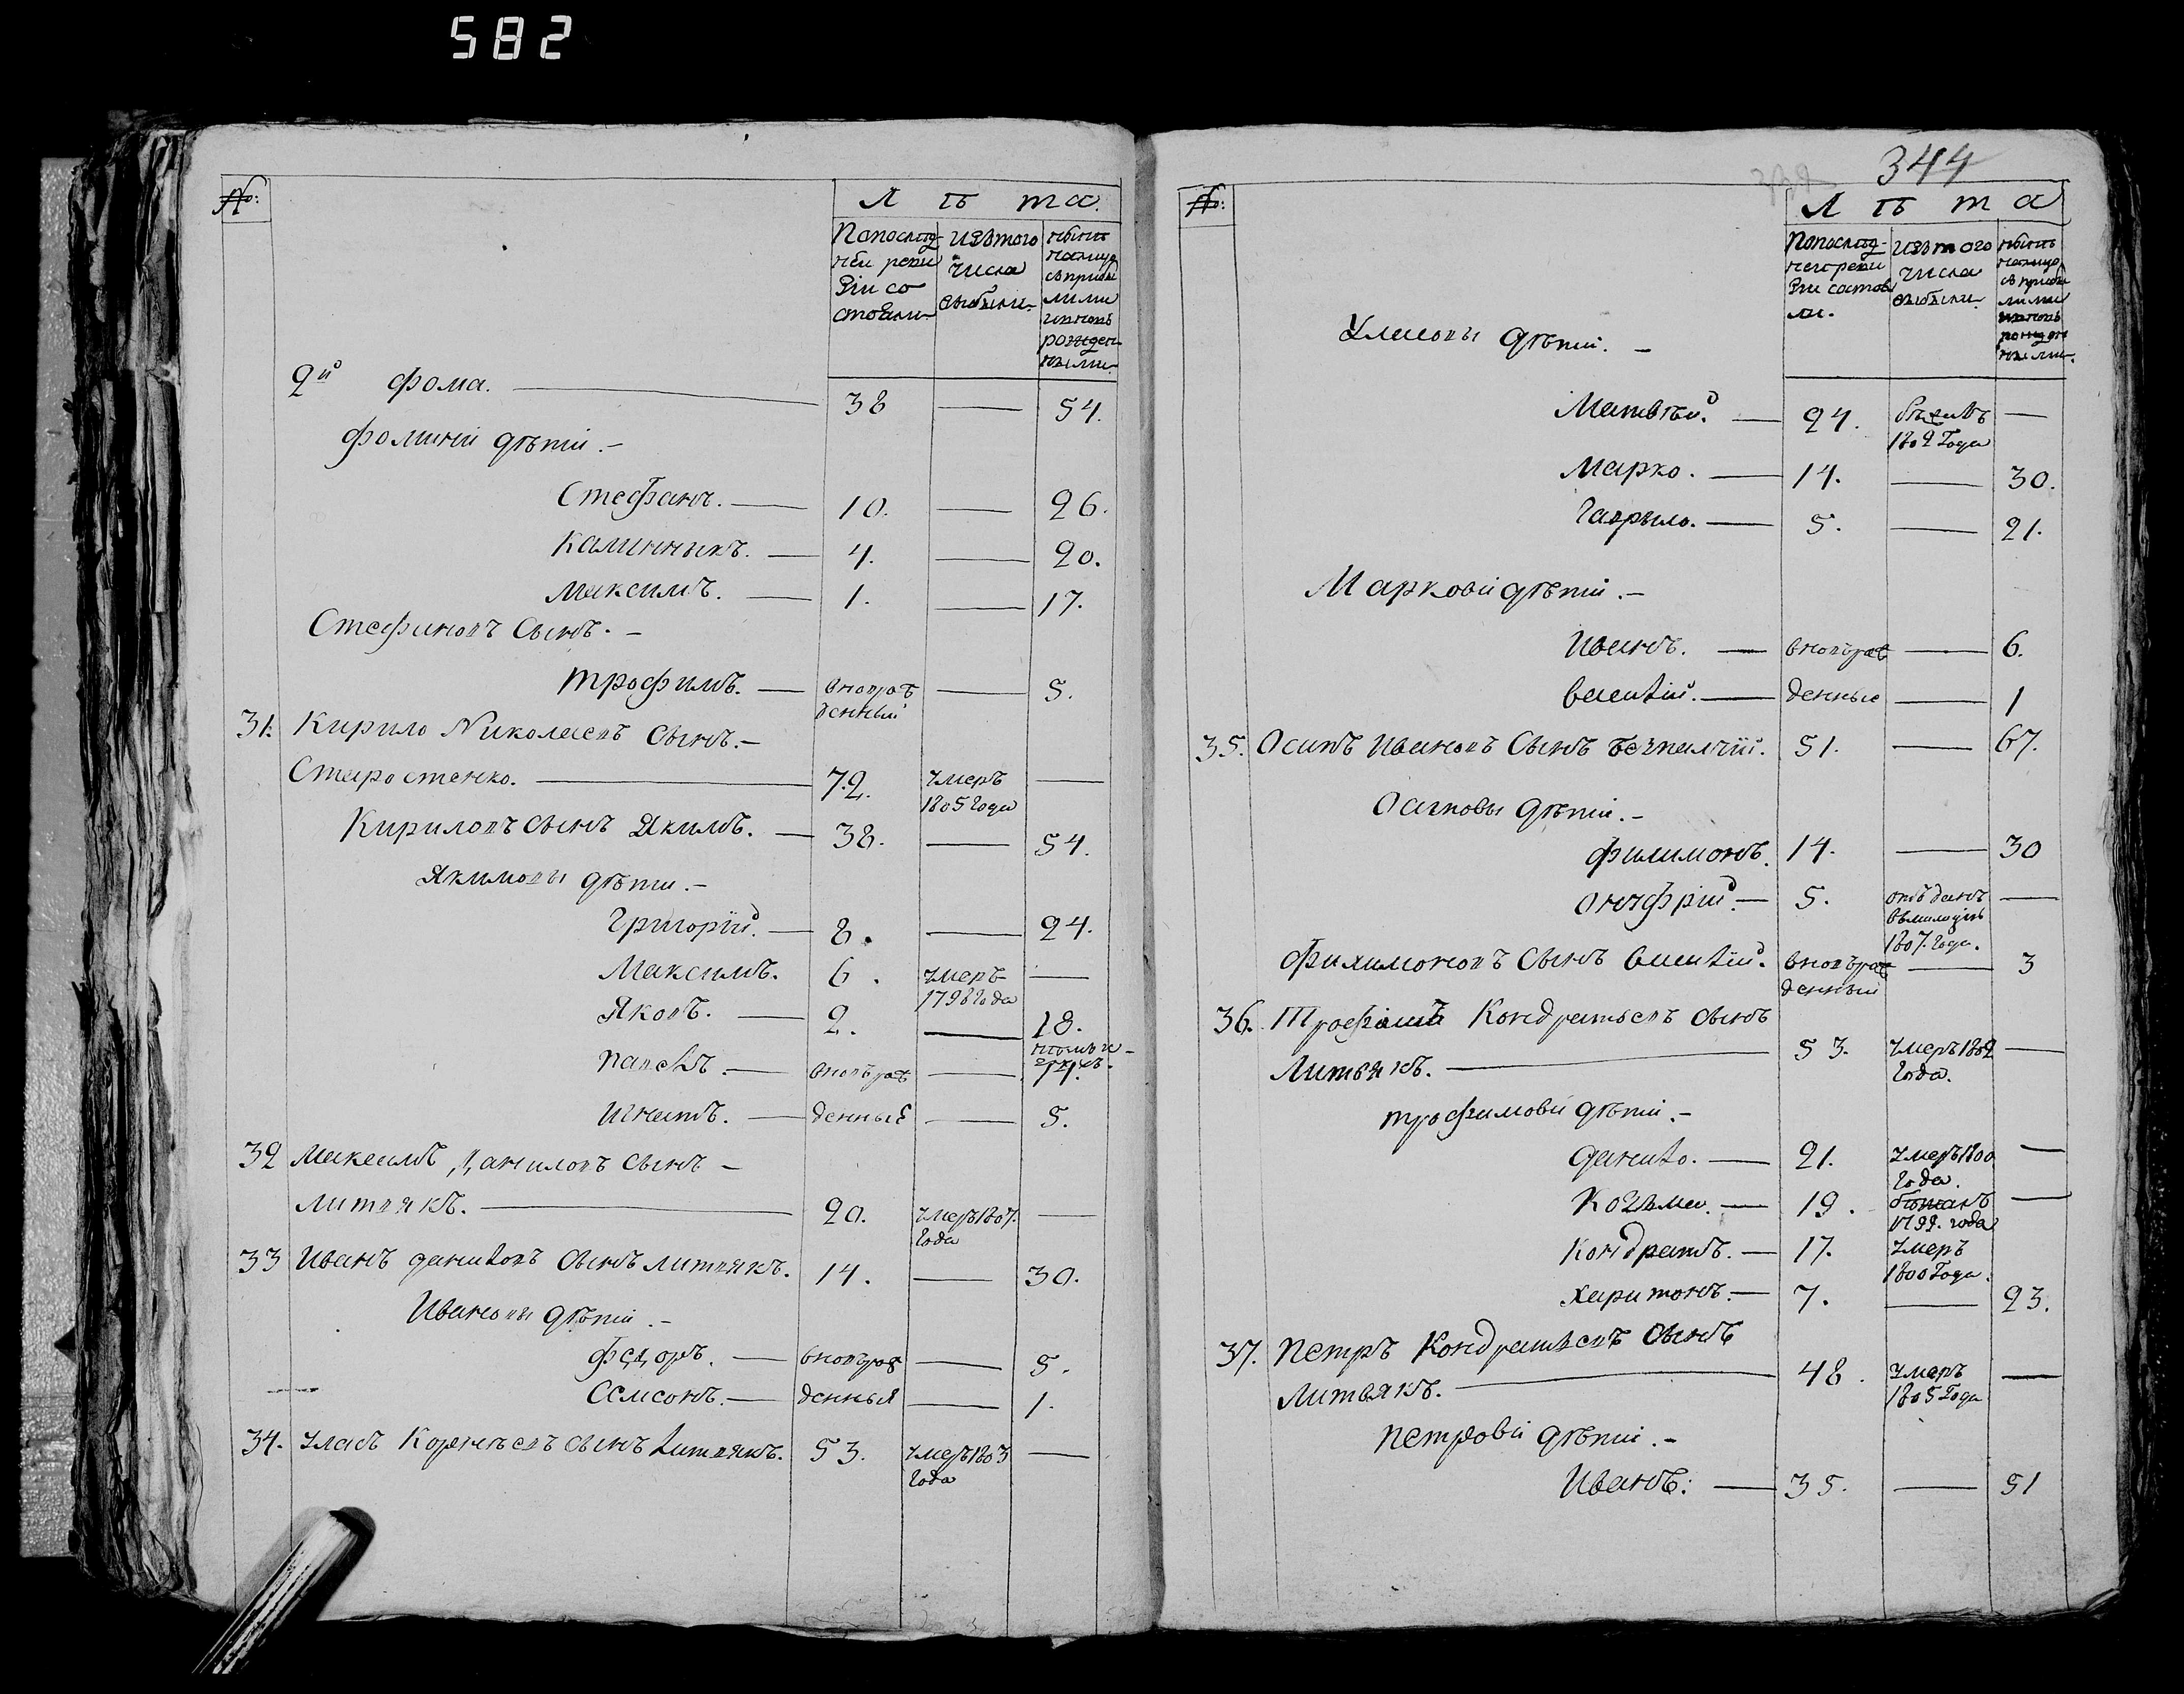 582
№:
Л ѣ та.
Попослѣд-
ней реви
зіи со
стояли
Изътого
числа
выбыли
нынѣ
налицо
съприбы
лыми
ивновь
рожден
ными
2й Фома. — 38 — 54.
Фомины дѣти. –
Стефанъ. — 10. — 26.
Калинникъ. — 4. — 20.
Максимъ. — 1. — 17.
Стефановъ Сынъ. –
Трофимъ. — вновьрож
денный — 5.
31. Кирило Николаевъ Сынъ. –
Старостенко. — 72. умеръ —
1805 Года
Кириловъ сынъ Якимъ. — 38. — 54.
Якимовы дѣти. –
Григорій. — 8. — 24.
Максимъ. 6. умеръ —
1798 Года
Яковъ. — 2. — 18.
Павелъ. — вновьрож — 11.
Игнатъ. — денные — 5.
32 Максимъ Даниловъ Сынъ –
Литвякъ. — 20. умеръ 1807. —
Года
33 Иванъ Даниловъ Сынъ Литвякъ. 14. — 30.
Ивановы дѣти. –
Федоръ. — вновьрож — 5.
Самсонъ. — денныя — 1.
34. Уласъ Корнѣевъ сынъ Литвякъ. 53. умеръ 1803 —
Года
344
№:
Л ѣ т а
Попослѣд-
ней реви
зіи состоя
ли.
Изътого
числа
выбыли
нынѣ
налицо
съприбы
лыми
ивновь
рожден
ными
Уласовы дѣти. –
Матвѣй. — 24. бѣжалъ —
1802 Года
Марко. — 14. — 30.
Гаврыло. — 5. — 21.
Марковы дѣти. –
Иванъ. — вновьрож — 6.
Василій. — денные — 1
35. Осипъ Ивановъ Сынъ Безпалчій. 51. — 67.
Осиповы дѣти. –
Филимонъ. 14. — 30
Онуфрій. — 5. отъданъ —
вмилицію
1807. Года.
Филимоновъ Сынъ Василій. вновьрож — 3
денный
36. Трофимъ Кондратьевъ Сынъ
Литвякъ. — 53. умеръ 1802 —
Года.
Трофимовы дѣти. –
Данило. — 21. умеръ 1800 —
Года.
Козьма. — 19. бѣжалъ —
1799. года
Кондратъ. — 17. умеръ
1800 Года.
Харитонъ. — 7. — 23.
37. Петръ Кондратьевъ Сынъ
Литвякъ. — 48. умеръ —
1805 Года
Петровы дѣти. –
Иванъ: — 35. — 51